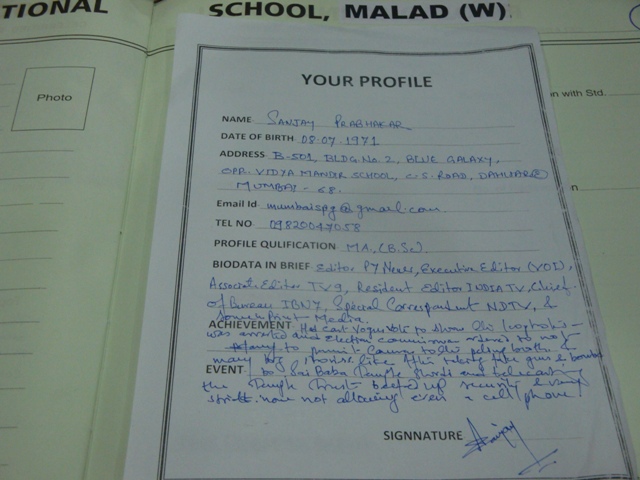 TIONAL SCHOOL, MALAD (W)
Photo
on with Std.
YOUR PROFILE
NAME SANJAY PRABHAKAR
DATE OF BIRTH 08.07.1971
ADDRESS B-501, BLDG. No. 2, BLUE GALAXY,
OPP. VIDYA MANDIR SCHOOL, C.S. ROAD, DAHISAR(E)
MUMBAI - 68.
Email Id mumbaispg@gmail.com
TEL NO 09820047058
PROFILE QULIFICATION M.A, (B.Sc)
BIODATA IN BRIEF Editor P7 News, Executive Editor (VOI),
Associate Editor TV9, Resident Editor INDIA TV, Chief
of Bureau IBN7, Special Correspondent NDTV, &
Some Print Media.
ACHIEVEMENT Had cast vogus vote to show the loopholes -
was arrested and Election commission orders to not
to permit Camera
many big stories like after taking fake guns & bombs
EVENT to Sai Baba Temple Shirdi and telecasting
the Temple Trust beefed up security &
strict. now not allowing even a cell phone
SIGNNATURE Sanjay